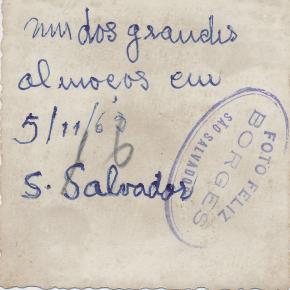 num dos grandes
almoços em
5/11/63
S. Salvador
16
FOTO FELIZ
BORGES
SÃO SALVADOR